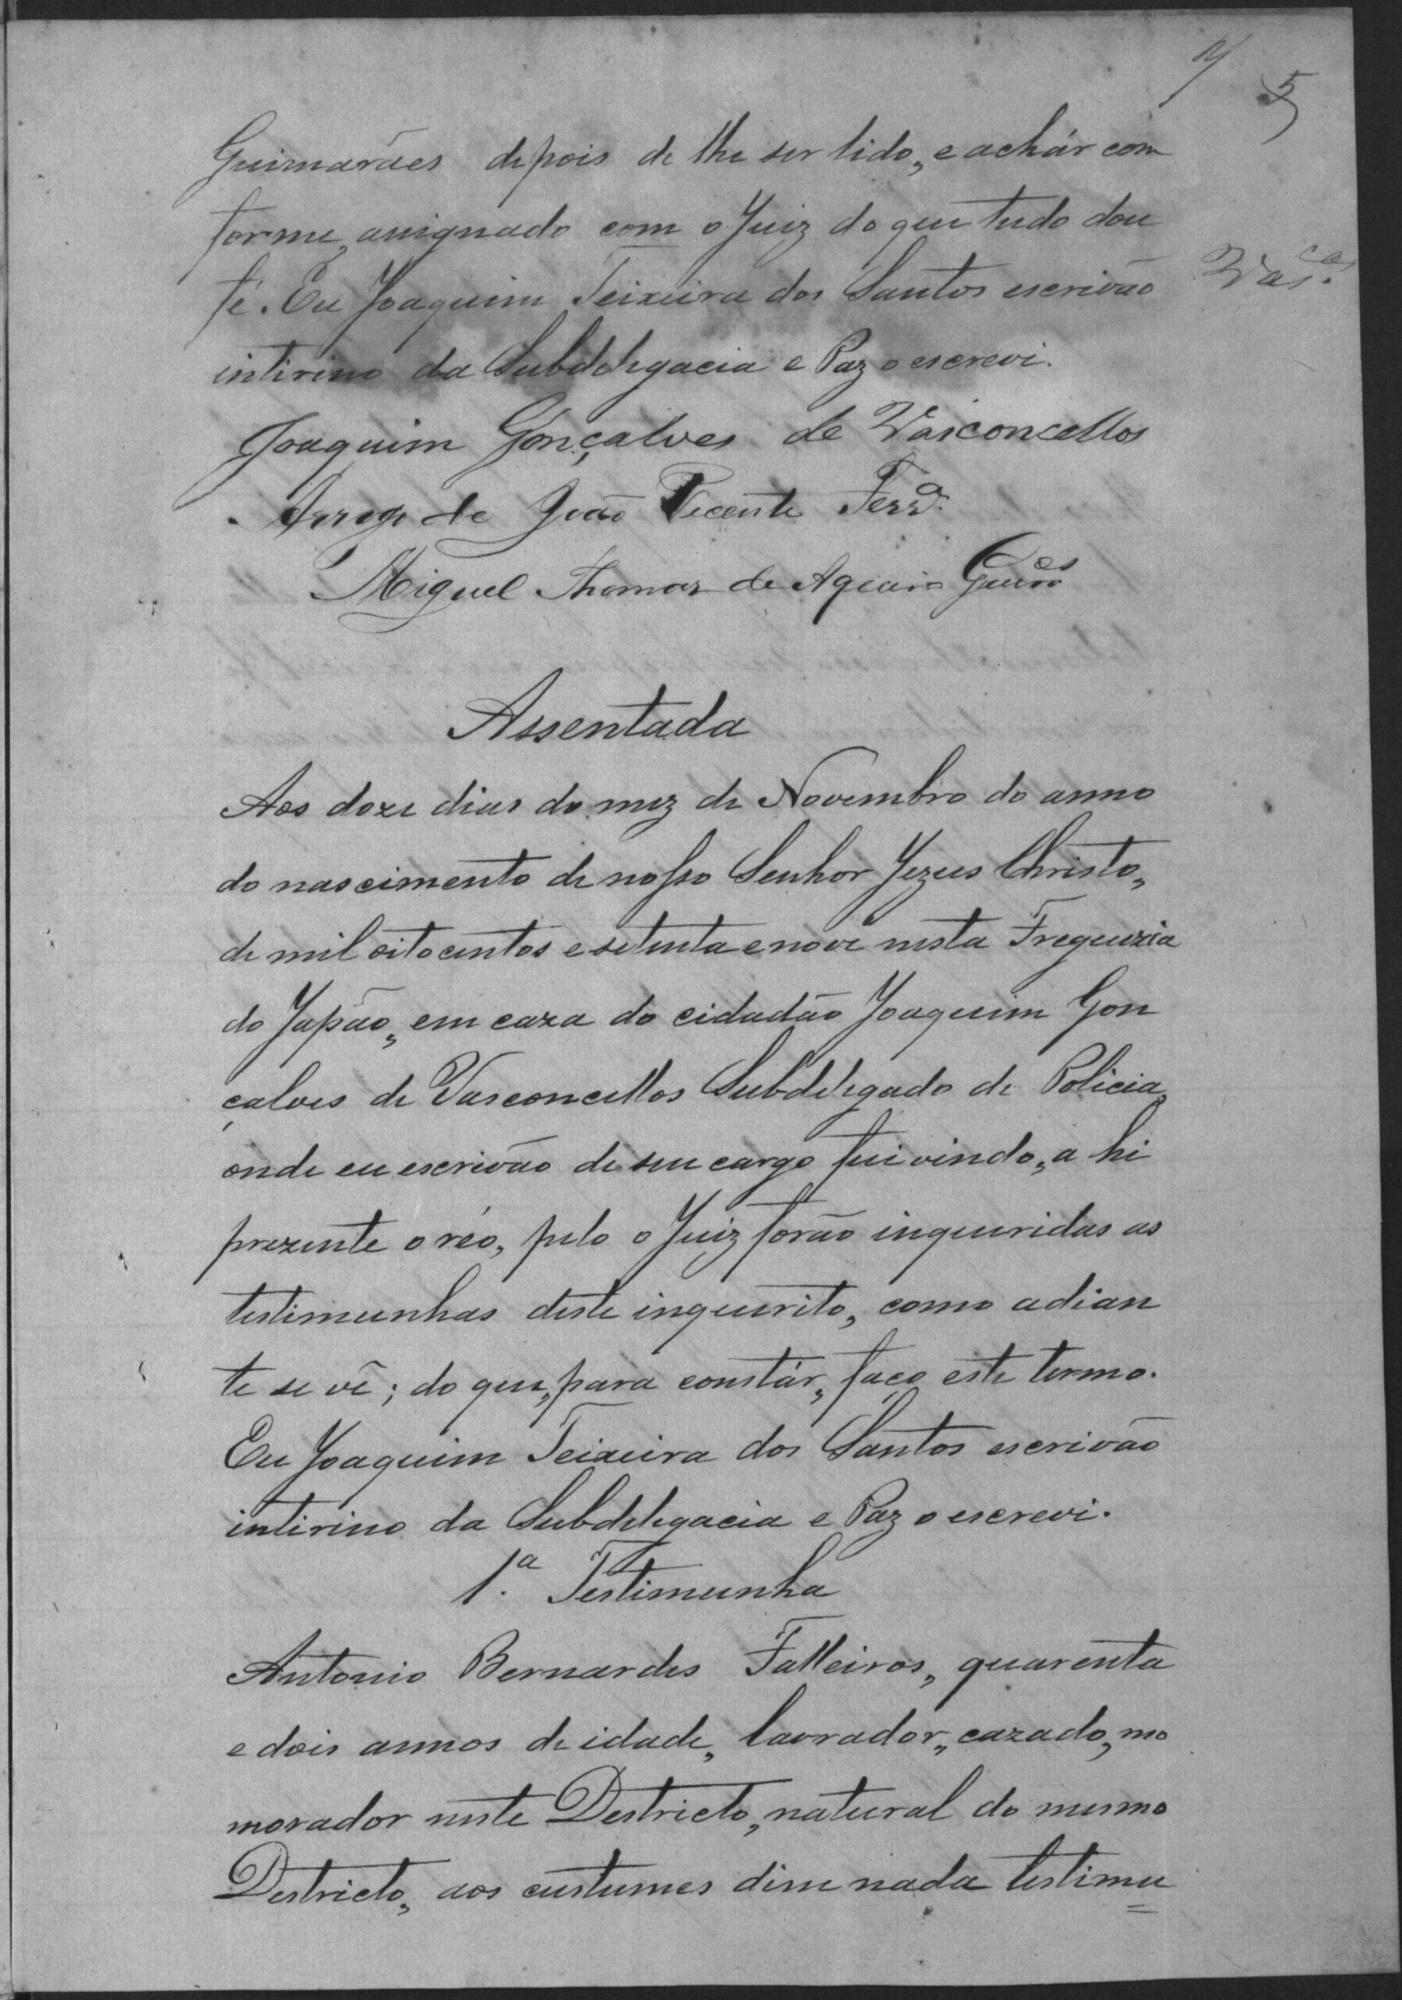 5
Guimarães depois de lhe ser lido, e achár com
forme, assignado com o Juiz do que tudo dou
fé. Eu Joaquim Teixeira dos Santos escrivão
Vas.cos
intirino da Subdelegacia e Paz o escrevi.
Joaquim Gonçalves de Vasconcellos
Arrogo de João Vicente Ferr.a
Miguel Thomas de Aquino Guim.es
Assentada
Aos doze dias do mez de Novembro do anno
do nascimento de nosso Senhor Jezus Christo,
de mil oitocentos e setenta e nove nesta Freguezia
do Japão, em caza do cidadão Joaquim Gon
çalves de Vasconcellos Subdelegado de Policia,
onde eu escrivão de seu cargo fui vindo, a hi
prezente o réo, pelo o Juiz forão inqueridas as
testimunhas deste inquerito, como adian
te se vê; do que, para constár, faço este termo.
Eu Joaquim Teixeira dos Santos escrivão
intirino da Subdelegacia e Paz o escrevi.
1.a Testimunha
Antonio Bernardes Falleiros, quarenta
e dois annos de idade, lavrador, cazado, mo
morador neste Destricto, natural do mesmo
Destricto, aos custumes disse nada testimu